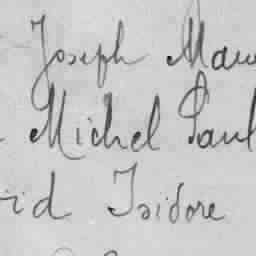 Joseph Mau
Michel Paul
id Isidore